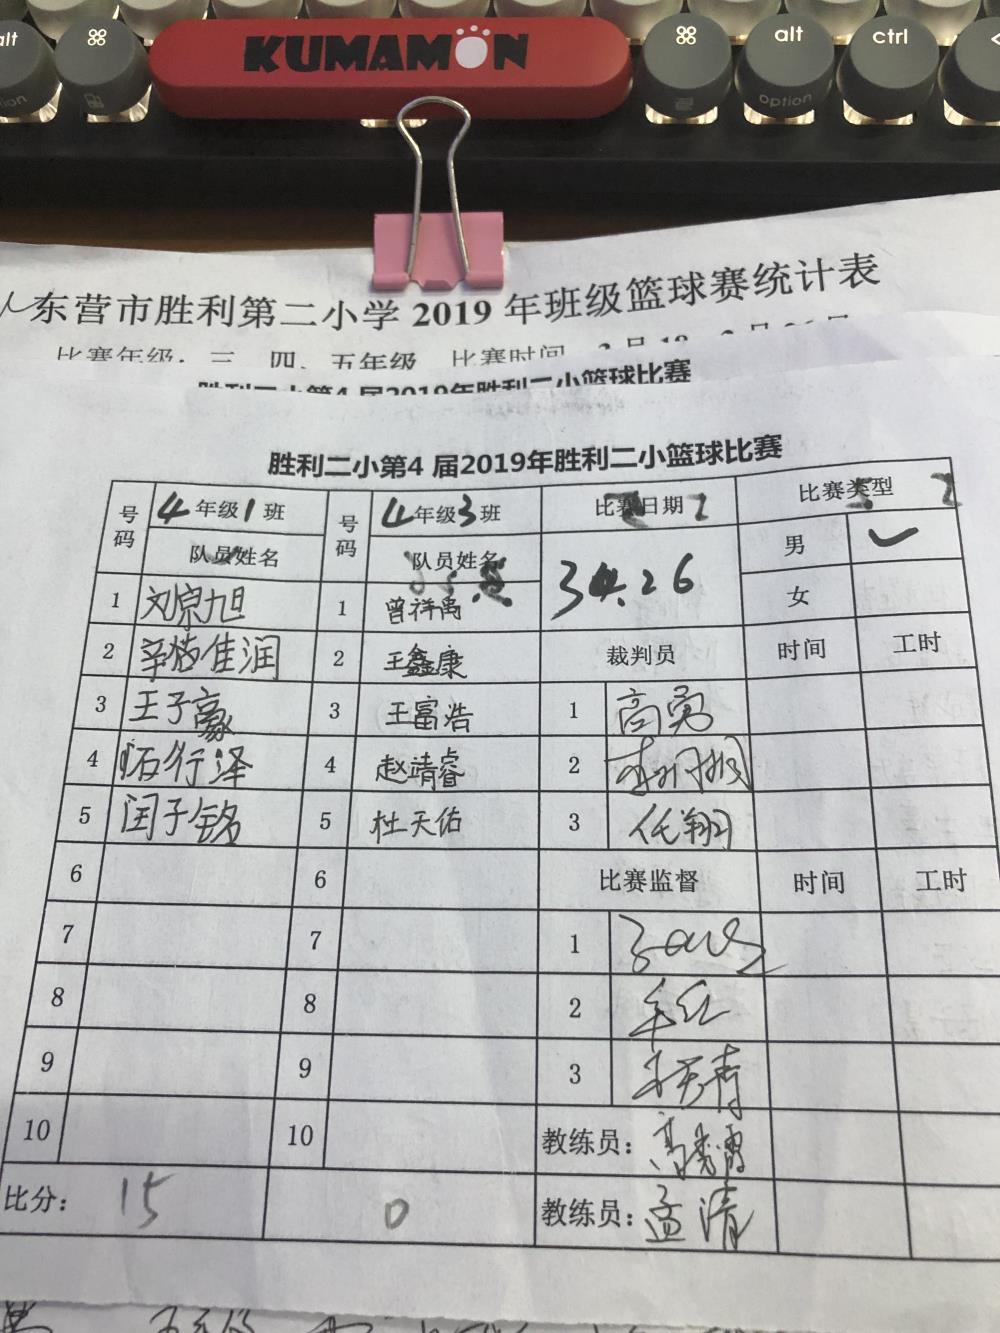 alt
⌘
KUMAMON
⌘
alt
ctrl
option
option
东营市胜利第二小学 2019 年班级篮球赛统计表
比赛年级：三、四、五年级 比赛时间
胜利二小第4 届2019年胜利二小篮球比赛
胜利二小第4 届2019年胜利二小篮球比赛
号码 4年级1班 号码 4年级3班 比赛日期 比赛类型
队员姓名 队员姓名 男 ✓
3月26 女
1 刘宗旭 1 曾祥禹
2 辛档佳润 2 王鑫康 裁判员 时间 工时
3 王子豪 3 王富浩 1 高勇
4 行泽 4 赵靖睿 2
5 闰子铭 5 杜天佑 3 任翔
6 6 比赛监督 时间 工时
7 7 1
8 8 2
9 9 3
10 10 教练员：
比分： 15 0 教练员：孟清